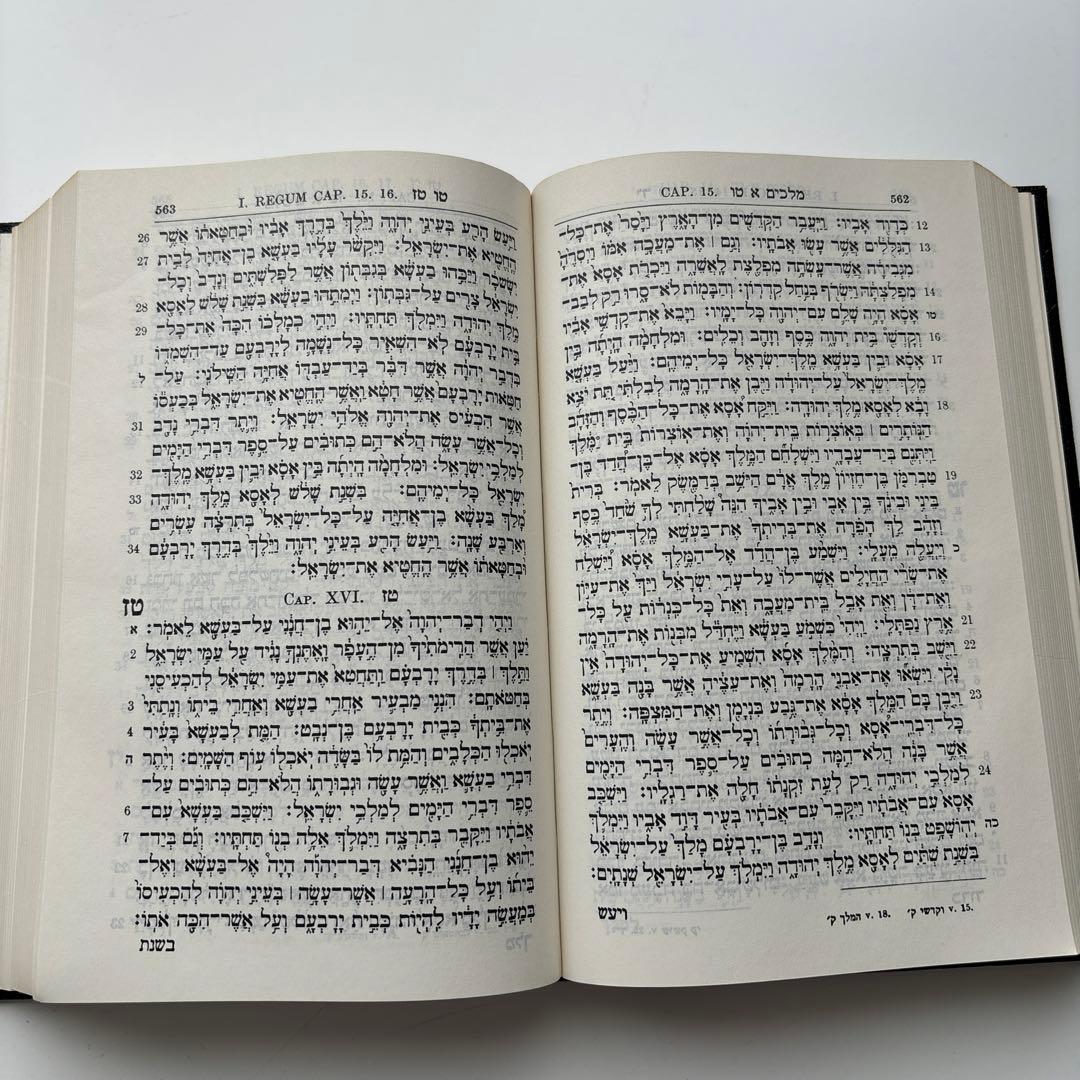 562 מלכים א טו CAP. 15.
12 כְּדָוִד אָבִיו׃ וַיַּעֲבֵר הַקְּדֵשִׁים מִן־הָאָרֶץ וַיָּסַר אֶת־כָּל־
13 הַגִּלֻּלִים אֲשֶׁר עָשׂוּ אֲבֹתָיו׃ וְגַם ׀ אֶת־מַעֲכָה אִמּוֹ וַיְסִרֶהָ
מִגְּבִירָה אֲשֶׁר־עָשְׂתָה מִפְלֶצֶת לָאֲשֵׁרָה וַיִּכְרֹת אָסָא אֶת־
14 מִפְלַצְתָּהּ וַיִּשְׂרֹף בְּנַחַל קִדְרוֹן׃ וְהַבָּמוֹת לֹא־סָרוּ רַק לְבַב־
טו אָסָא הָיָה שָׁלֵם עִם־יְהוָה כָּל־יָמָיו׃ וַיָּבֵא אֶת־קָדְשֵׁי אָבִיו
16 וְקָדְשֵׁוֹ בֵּית יְהוָה כֶּסֶף וְזָהָב וְכֵלִים׃ וּמִלְחָמָה הָיְתָה בֵּין
17 אָסָא וּבֵין בַּעְשָׁא מֶלֶךְ־יִשְׂרָאֵל כָּל־יְמֵיהֶם׃ וַיַּעַל בַּעְשָׁא
מֶלֶךְ־יִשְׂרָאֵל עַל־יְהוּדָה וַיִּבֶן אֶת־הָרָמָה לְבִלְתִּי תֵּת יֹצֵא
18 וָבָא לְאָסָא מֶלֶךְ יְהוּדָה׃ וַיִּקַּח אָסָא אֶת־כָּל־הַכֶּסֶף וְהַזָּהָב
הַנּוֹתָרִים ׀ בְּאוֹצְרוֹת בֵּית־יְהוָה וְאֶת־אוֹצְרוֹת בֵּית מֶלֶךְ
וַיִּתְּנֵם בְּיַד־עֲבָדָיו וַיִּשְׁלָחֵם הַמֶּלֶךְ אָסָא אֶל־בֶּן־הֲדַד בֶּן־
19 טַבְרִמֹּן בֶּן־חֶזְיוֹן מֶלֶךְ אֲרָם הַיֹּשֵׁב בְּדַמֶּשֶׂק לֵאמֹר׃ בְּרִית
בֵּינִי וּבֵינֶךָ בֵּין אָבִי וּבֵין אָבִיךָ הִנֵּה שָׁלַחְתִּי לְךָ שֹׁחַד כֶּסֶף
וְזָהָב לֵךְ הָפֵרָה אֶת־בְּרִיתְךָ אֶת־בַּעְשָׁא מֶלֶךְ־יִשְׂרָאֵל
כ וְיַעֲלֶה מֵעָלָי׃ וַיִּשְׁמַע בֶּן־הֲדַד אֶל־הַמֶּלֶךְ אָסָא וַיִּשְׁלַח
אֶת־שָׂרֵי הַחֲיָלִים אֲשֶׁר־לוֹ עַל־עָרֵי יִשְׂרָאֵל וַיַּךְ אֶת־עִיּוֹן
וְאֶת־דָּן וְאֵת אָבֵל בֵּית־מַעֲכָה וְאֵת כָּל־כִּנְרוֹת עַל כָּל־
21 אֶרֶץ נַפְתָּלִי׃ וַיְהִי כִּשְׁמֹעַ בַּעְשָׁא וַיֶּחְדַּל מִבְּנוֹת אֶת־הָרָמָה
22 וַיֵּשֶׁב בְּתִרְצָה׃ וְהַמֶּלֶךְ אָסָא הִשְׁמִיעַ אֶת־כָּל־יְהוּדָה אֵין
נָקִי וַיִּשְׂאוּ אֶת־אַבְנֵי הָרָמָה וְאֶת־עֵצֶיהָ אֲשֶׁר בָּנָה בַּעְשָׁא
23 וַיִּבֶן בָּם הַמֶּלֶךְ אָסָא אֶת־גֶּבַע בִּנְיָמִן וְאֶת־הַמִּצְפָּה׃ וְיֶתֶר
כָּל־דִּבְרֵי־אָסָא וְכָל־גְּבוּרָתוֹ וְכָל־אֲשֶׁר עָשָׂה וְהֶעָרִים
אֲשֶׁר בָּנָה הֲלֹא־הֵמָּה כְתוּבִים עַל־סֵפֶר דִּבְרֵי הַיָּמִים
24 לְמַלְכֵי יְהוּדָה רַק לְעֵת זִקְנָתוֹ חָלָה אֶת־רַגְלָיו׃ וַיִּשְׁכַּב
אָסָא עִם־אֲבֹתָיו וַיִּקָּבֵר עִם־אֲבֹתָיו בְּעִיר דָּוִד אָבִיו וַיִּמְלֹךְ
כה יְהוֹשָׁפָט בְּנוֹ תַּחְתָּיו׃ וְנָדָב בֶּן־יָרָבְעָם מָלַךְ עַל־יִשְׂרָאֵל
בִּשְׁנַת שְׁתַּיִם לְאָסָא מֶלֶךְ יְהוּדָה וַיִּמְלֹךְ עַל־יִשְׂרָאֵל שְׁנָתָיִם׃
v. 15. וקדשי ק׳ v. 18. המלך ק׳
ויעש
טו טז I. REGUM CAP. 15. 16. 563
וַיַּעַשׂ הָרַע בְּעֵינֵי יְהוָה וַיֵּלֶךְ בְּדֶרֶךְ אָבִיו וּבְחַטָּאתוֹ אֲשֶׁר 26
הֶחֱטִיא אֶת־יִשְׂרָאֵל׃ וַיִּקְשֹׁר עָלָיו בַּעְשָׁא בֶן־אֲחִיָּה לְבֵית 27
יִשָּׂשכָר וַיַּכֵּהוּ בַעְשָׁא בְּגִבְּתוֹן אֲשֶׁר לַפְּלִשְׁתִּים וְנָדָב וְכָל־
יִשְׂרָאֵל צָרִים עַל־גִּבְּתוֹן׃ וַיְמִתֵהוּ בַעְשָׁא בִּשְׁנַת שָׁלֹשׁ לְאָסָא 28
מֶלֶךְ יְהוּדָה וַיִּמְלֹךְ תַּחְתָּיו׃ וַיְהִי כְמָלְכוֹ הִכָּה אֶת־כָּל־ 29
בֵּית יָרָבְעָם לֹא־הִשְׁאִיר כָּל־נְשָׁמָה לְיָרָבְעָם עַד־הִשְׁמִדוֹ
כִּדְבַר יְהוָה אֲשֶׁר דִּבֶּר בְּיַד־עַבְדּוֹ אֲחִיָּה הַשִּׁילֹנִי׃ עַל־ ל
חַטֹּאות יָרָבְעָם אֲשֶׁר חָטָא וַאֲשֶׁר הֶחֱטִיא אֶת־יִשְׂרָאֵל בְּכַעְסוֹ
אֲשֶׁר הִכְעִיס אֶת־יְהוָה אֱלֹהֵי יִשְׂרָאֵל׃ וְיֶתֶר דִּבְרֵי נָדָב 31
וְכָל־אֲשֶׁר עָשָׂה הֲלֹא־הֵם כְּתוּבִים עַל־סֵפֶר דִּבְרֵי הַיָּמִים
לְמַלְכֵי יִשְׂרָאֵל׃ וּמִלְחָמָה הָיְתָה בֵּין אָסָא וּבֵין בַּעְשָׁא מֶלֶךְ־ 32
יִשְׂרָאֵל כָּל־יְמֵיהֶם׃ בִּשְׁנַת שָׁלֹשׁ לְאָסָא מֶלֶךְ יְהוּדָה 33
מָלַךְ בַּעְשָׁא בֶן־אֲחִיָּה עַל־כָּל־יִשְׂרָאֵל בְּתִרְצָה עֶשְׂרִים
וְאַרְבַּע שָׁנָה׃ וַיַּעַשׂ הָרַע בְּעֵינֵי יְהוָה וַיֵּלֶךְ בְּדֶרֶךְ יָרָבְעָם 34
וּבְחַטָּאתוֹ אֲשֶׁר הֶחֱטִיא אֶת־יִשְׂרָאֵל׃
CAP. XVI. טז טז
וַיְהִי דְבַר־יְהוָה אֶל־יֵהוּא בֶן־חֲנָנִי עַל־בַּעְשָׁא לֵאמֹר׃ א
יַעַן אֲשֶׁר הֲרִימֹתִיךָ מִן־הֶעָפָר וָאֶתֶּנְךָ נָגִיד עַל עַמִּי יִשְׂרָאֵל 2
וַתֵּלֶךְ ׀ בְּדֶרֶךְ יָרָבְעָם וַתַּחֲטִא אֶת־עַמִּי יִשְׂרָאֵל לְהַכְעִיסֵנִי
בְּחַטֹּאתָם׃ הִנְנִי מַבְעִיר אַחֲרֵי בַעְשָׁא וְאַחֲרֵי בֵיתוֹ וְנָתַתִּי 3
אֶת־בֵּיתְךָ כְּבֵית יָרָבְעָם בֶּן־נְבָט׃ הַמֵּת לְבַעְשָׁא בָּעִיר 4
יֹאכְלוּ הַכְּלָבִים וְהַמֵּת לוֹ בַּשָּׂדֶה יֹאכְלוּ עוֹף הַשָּׁמָיִם׃ וְיֶתֶר ה
דִּבְרֵי בַעְשָׁא וַאֲשֶׁר עָשָׂה וּגְבוּרָתוֹ הֲלֹא־הֵם כְּתוּבִים עַל־
סֵפֶר דִּבְרֵי הַיָּמִים לְמַלְכֵי יִשְׂרָאֵל׃ וַיִּשְׁכַּב בַּעְשָׁא עִם־ 6
אֲבֹתָיו וַיִּקָּבֵר בְּתִרְצָה וַיִּמְלֹךְ אֵלָה בְנוֹ תַּחְתָּיו׃ וְגַם בְּיַד־ 7
יֵהוּא בֶן־חֲנָנִי הַנָּבִיא דְּבַר־יְהוָה הָיָה אֶל־בַּעְשָׁא וְאֶל־
בֵּיתוֹ וְעַל כָּל־הָרָעָה ׀ אֲשֶׁר־עָשָׂה ׀ בְּעֵינֵי יְהוָה לְהַכְעִיסוֹ
בְּמַעֲשֵׂה יָדָיו לִהְיוֹת כְּבֵית יָרָבְעָם וְעַל אֲשֶׁר־הִכָּה אֹתוֹ׃
בשנת